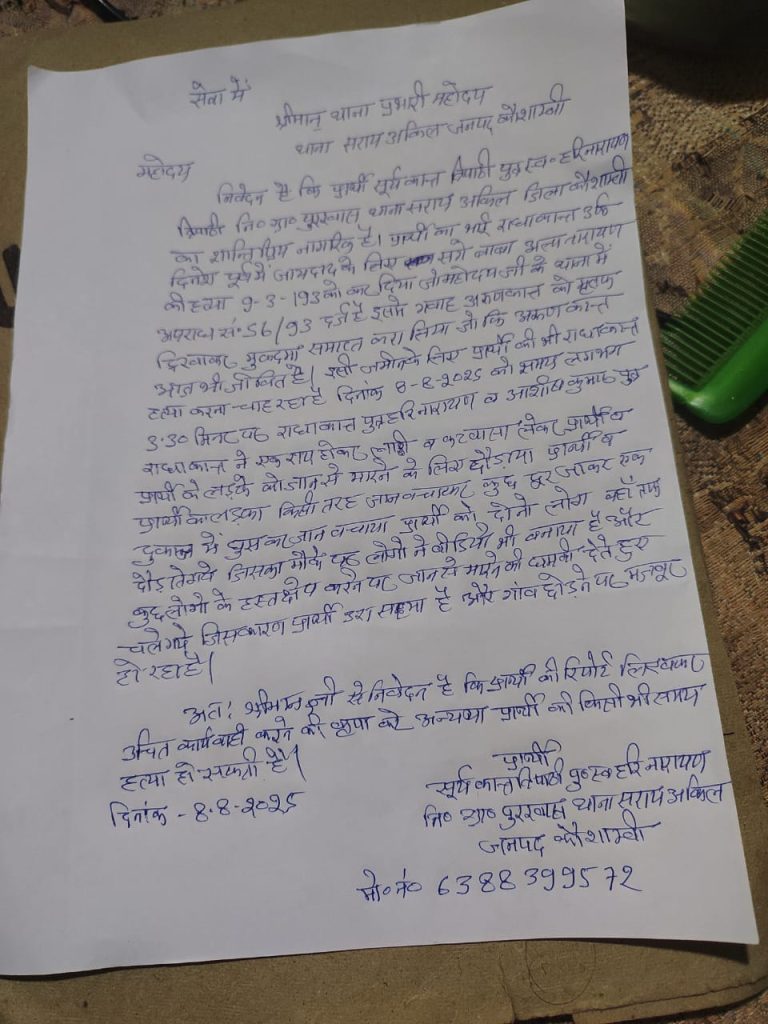 सेवा में
श्रीमान् थाना प्रभारी महोदय
थाना सराय अकिल जनपद कौशाम्बी
महोदय
निवेदन है कि प्रार्थी सूर्य कान्त त्रिपाठी पुत्र स्व० हरिनारायण
त्रिपाठी नि० ग्रा० पुरखास थाना सराय अकिल जिला कौशाम्बी
का शान्ति प्रिय नागरिक है। प्रार्थी का भाई राधाकान्त उर्फ
दिनेश पूर्व में जायदाद के लिए सगे बाबा नारायण
की हत्या 9-3-193 को कर दिया जो महोदय जी के थाना में
अपराध सं. 56/93 दर्ज है इसमे गवाह अरुणकान्त को मृतक
दिखाकर मुकदमा समाप्त करा लिया जो कि अरुण कान्त
आज भी जीवित है। इसी जमीन के लिए प्रार्थी की भी राधाकान्त
हत्या करना चाह रहा है दिनांक 8-8-2025 को समय लगभग
3.30 मिनट पर राधाकान्त पुत्र हरिनारायण व आशीष कुमार पुत्र
राधाकान्त ने एक राय होकर लाठी व लेकर प्रार्थी व
प्रार्थी के लड़के को जान से मारने के लिए दौड़ाया प्रार्थी व
प्रार्थी का लड़का किसी तरह जान बचाकर कुछ दूर जाकर एक
दुकान में घुस कर जान बचाया प्रार्थी को दोनो लोग वहाँ तक
दौड़ाते गये जिसका मौके पर लोगो ने वीडियो भी बनाया है और
कुछ लोगो के हस्तक्षेप करने पर जान से मारने की धमकी देते हुए
चले गये जिसकारण प्रार्थी डरा सहमा है और गांव छोड़ने पर मजबूर
हो रहा है।
अतः श्रीमान् जी से निवेदन है कि प्रार्थी की रिपोर्ट लिखकर
उचित कार्यवाही करने की कृपा करे अन्यथा प्रार्थी की किसी भी समय
हत्या हो सकती है।
प्रार्थी
सूर्य कान्त त्रिपाठी पु० स्व हरि नारायण
दिनांक - 8-8-2025
नि० ग्रा० पुरखास थाना सराय अकिल
जनपद कौशाम्बी
मो० नं० 6388399572